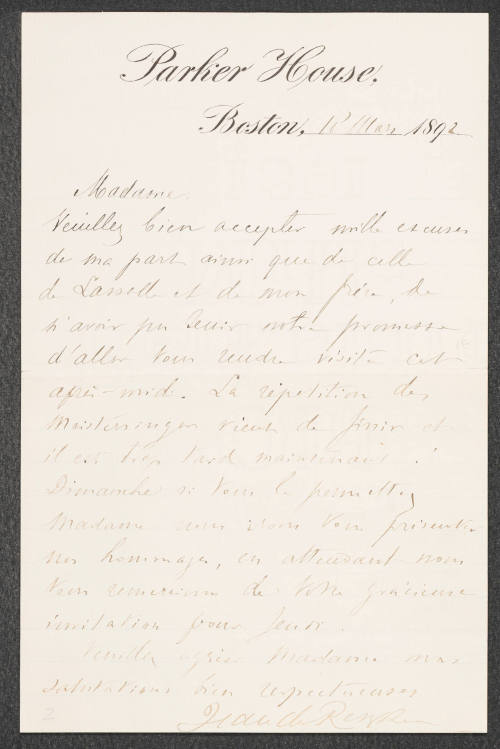 Parker House,
Boston, 18 Mars 1892
Madame
Veuillez bien accepter mille excuses
de ma part ainsi que de celle
de Lassalle et de mon frère, de
n'avoir pu tenir notre promesse
d'aller vous rendre visite cet
après-midi. La répétition des
Meistersinger vient de finir et
il est trop tard maintenant !
Dimanche si vous le permettez
Madame nous irons vous présenter
nos hommages, en attendant nous
vous remercions de votre gracieuse
invitation pour
Veuillez agréer Madame mes
salutations bien respectueuses
Jean de Reszke
2